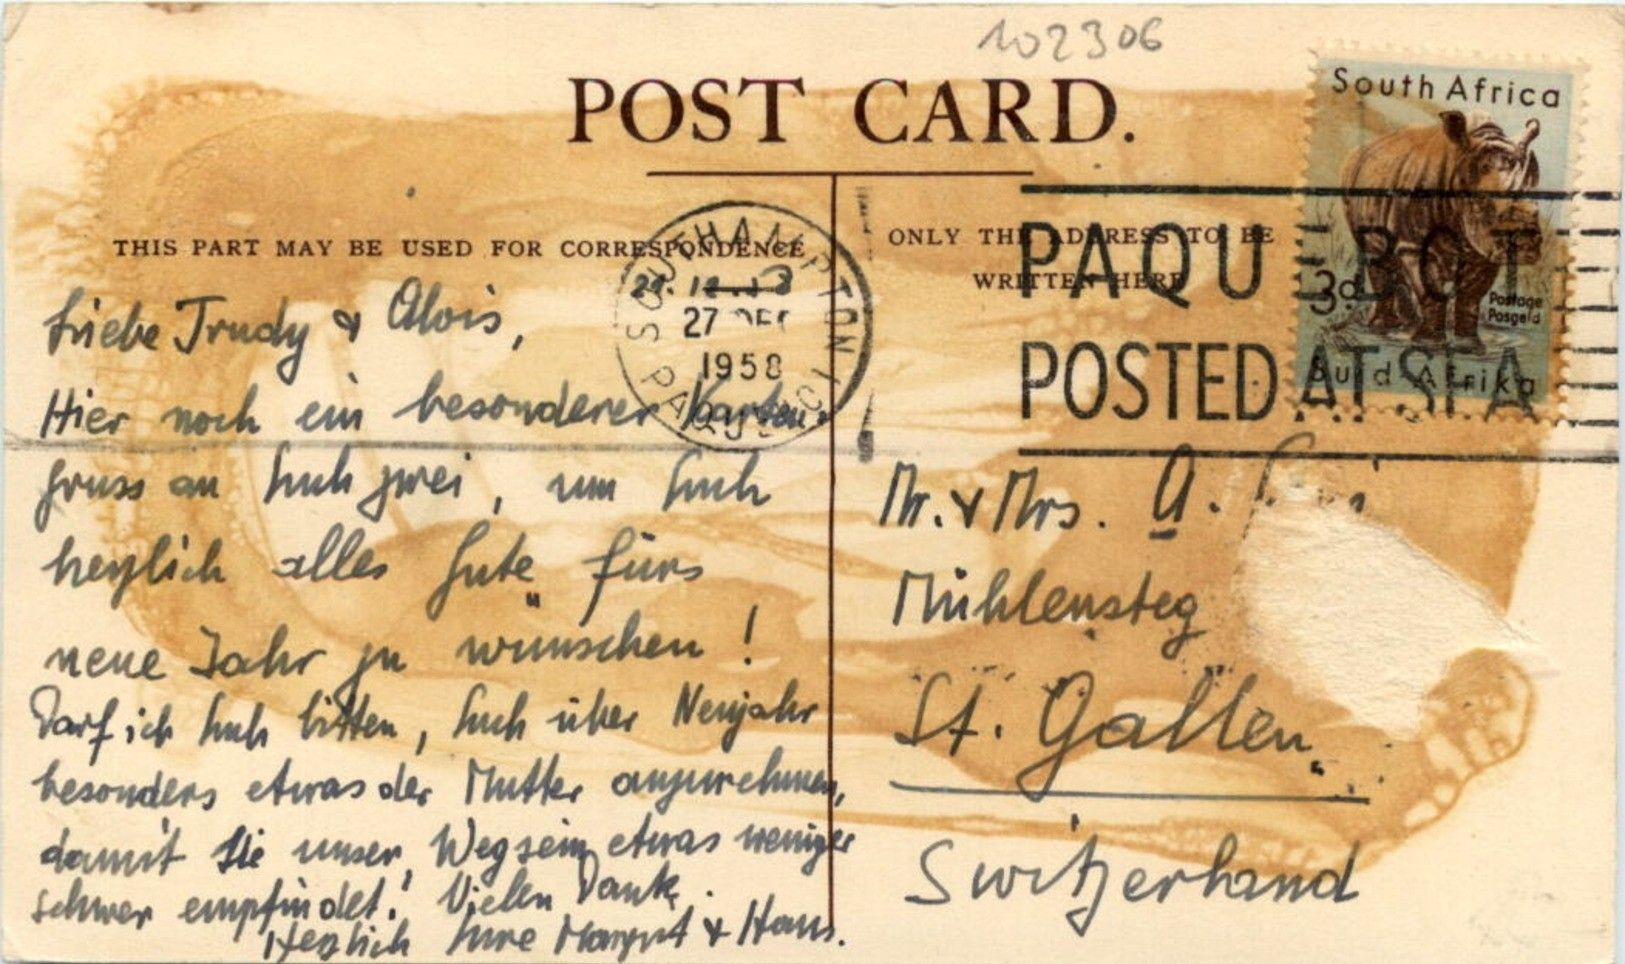 102306
POST CARD.
South Africa
THIS PART MAY BE USED FOR CORRESPONDENCE
ONLY THE ADDRESS TO BE
WRITTEN HERE
SOUTHAMPTON
27 DEC
1958
PAQUEBOT
POSTED AT SEA
3d.
Postage
Posgeld
Suid-Afrika
Liebe Trudy & Alois,
Hier noch ein besonderer Karten-
gruss an Euch zwei, um Euch
herzlich alles Gute fürs
neue Jahr zu wünschen!
Darf ich Euch bitten, Euch über Neujahr
besonders etwas der Mutter anzunehmen,
damit Sie unser Wegsein etwas weniger
schwer empfindet! Vielen Dank.
Herzlich Eure Margrit & Hans.
Mr. & Mrs. A.
Mühlensteg
St. Gallen
Switzerland